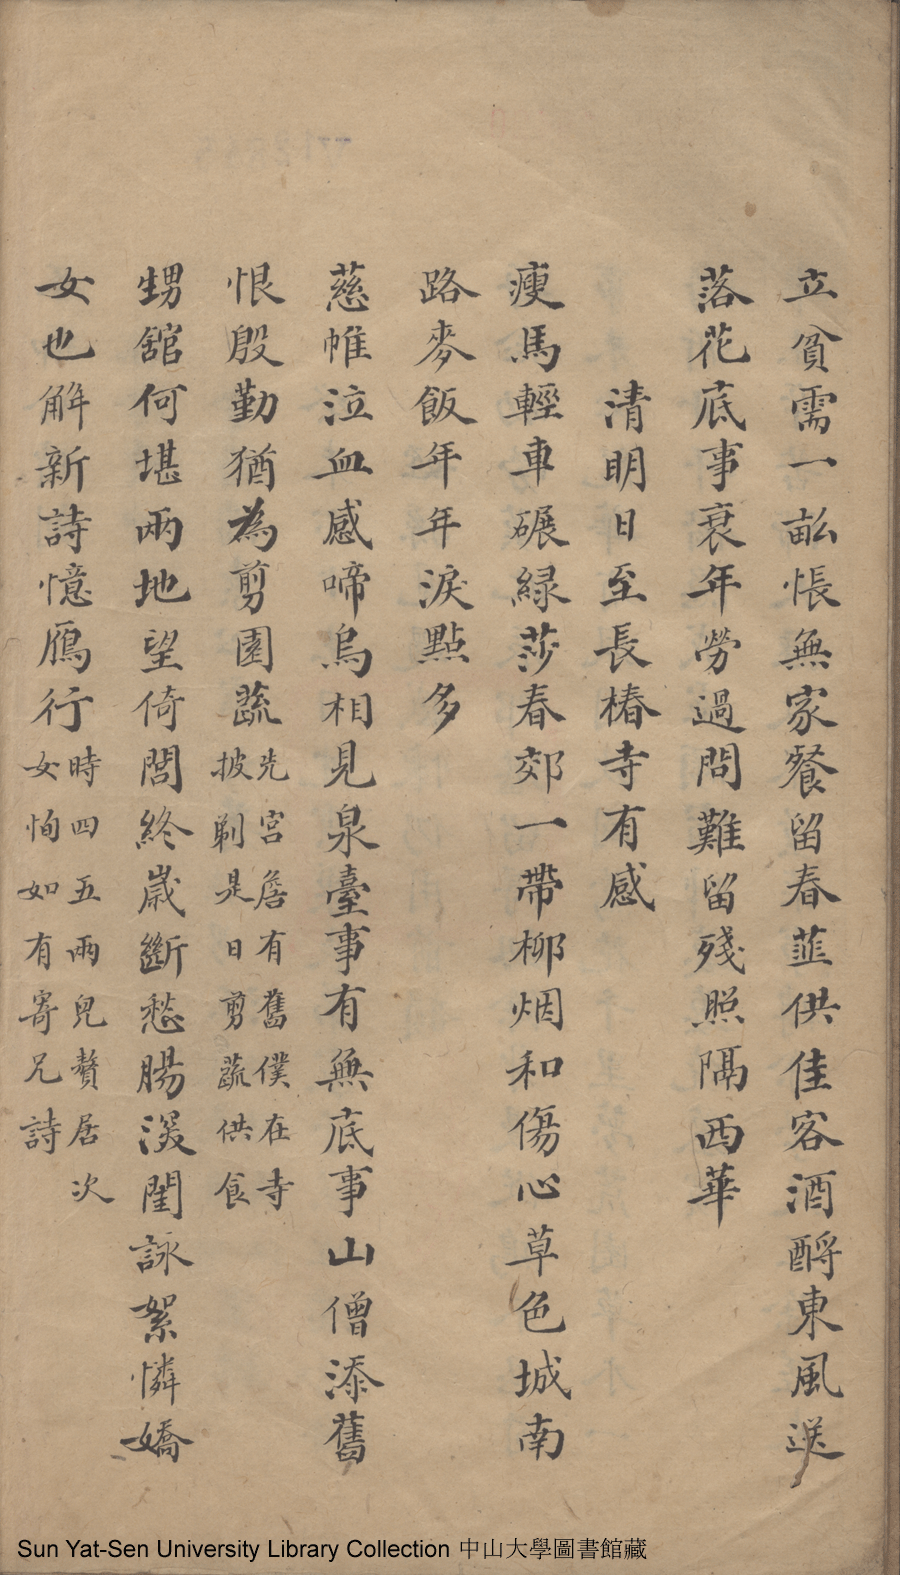 立貧需一畝悵無家餐留春韮供佳客酒酹東風送
落花底事衰年勞過問難留殘照隔西華
清明日至長椿寺有感
瘦馬輕車碾緑莎春郊一帶柳烟和傷心草色城南
路麥飯年年淚點多
慈帷泣血感啼烏相見泉臺事有無底事山僧添舊
恨殷勤猶為剪園蔬先宮詹有舊僕在寺
披剃是日剪蔬供食
甥舘何堪兩地望倚閭終歲斷愁腸深閨詠絮憐嬌
女也解新詩憶鴈行時四五兩兒贅居次
女恂如有寄兄詩
Sun Yat-Sen University Library Collection 中山大學圖書館藏